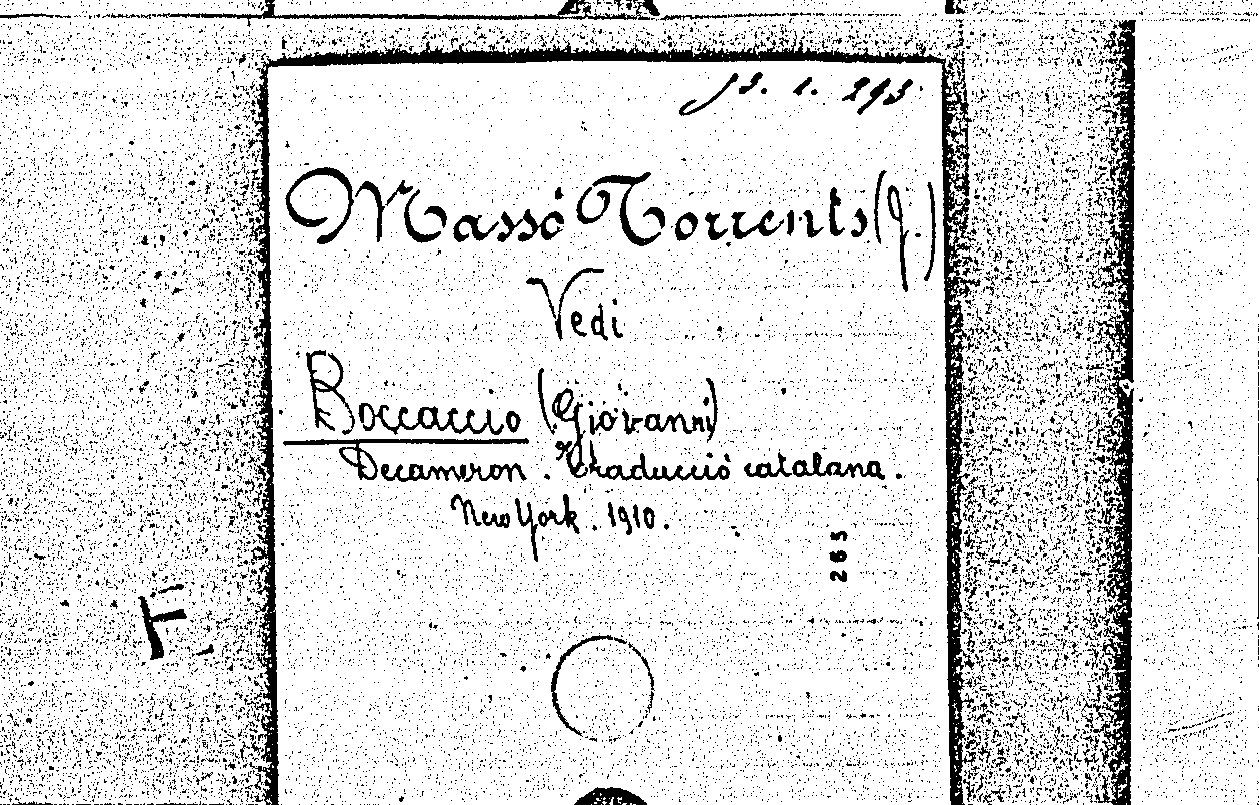 13. 1. 293
Massó Torrents (J.)
Vedi
Boccaccio (Giovanni)
Decameron. Traducció catalana.
New York. 1910.
265
F